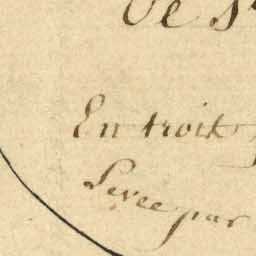 De S
En troit
Levée par